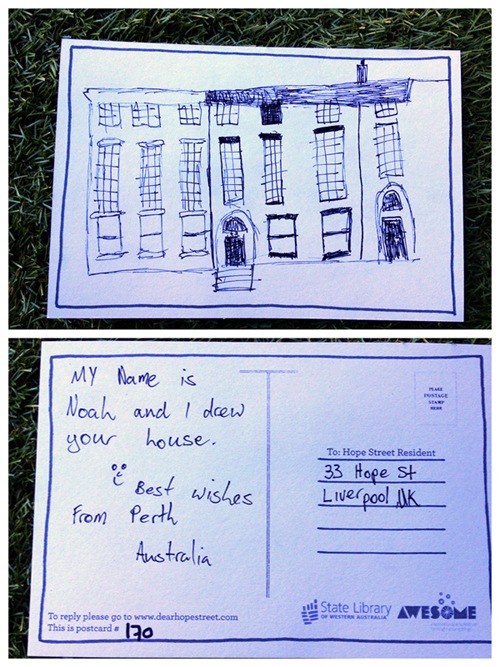 MY Name is
Noah and I drew
your house.
Best wishes
From Perth
Australia
PLACE
POSTAGE
STAMP
HERE
To: Hope Street Resident
33 Hope St
Liverpool UK
To reply please go to www.dearhopestreet.com
This is postcard # 170
State Library
OF WESTERN AUSTRALIA
AWESOME